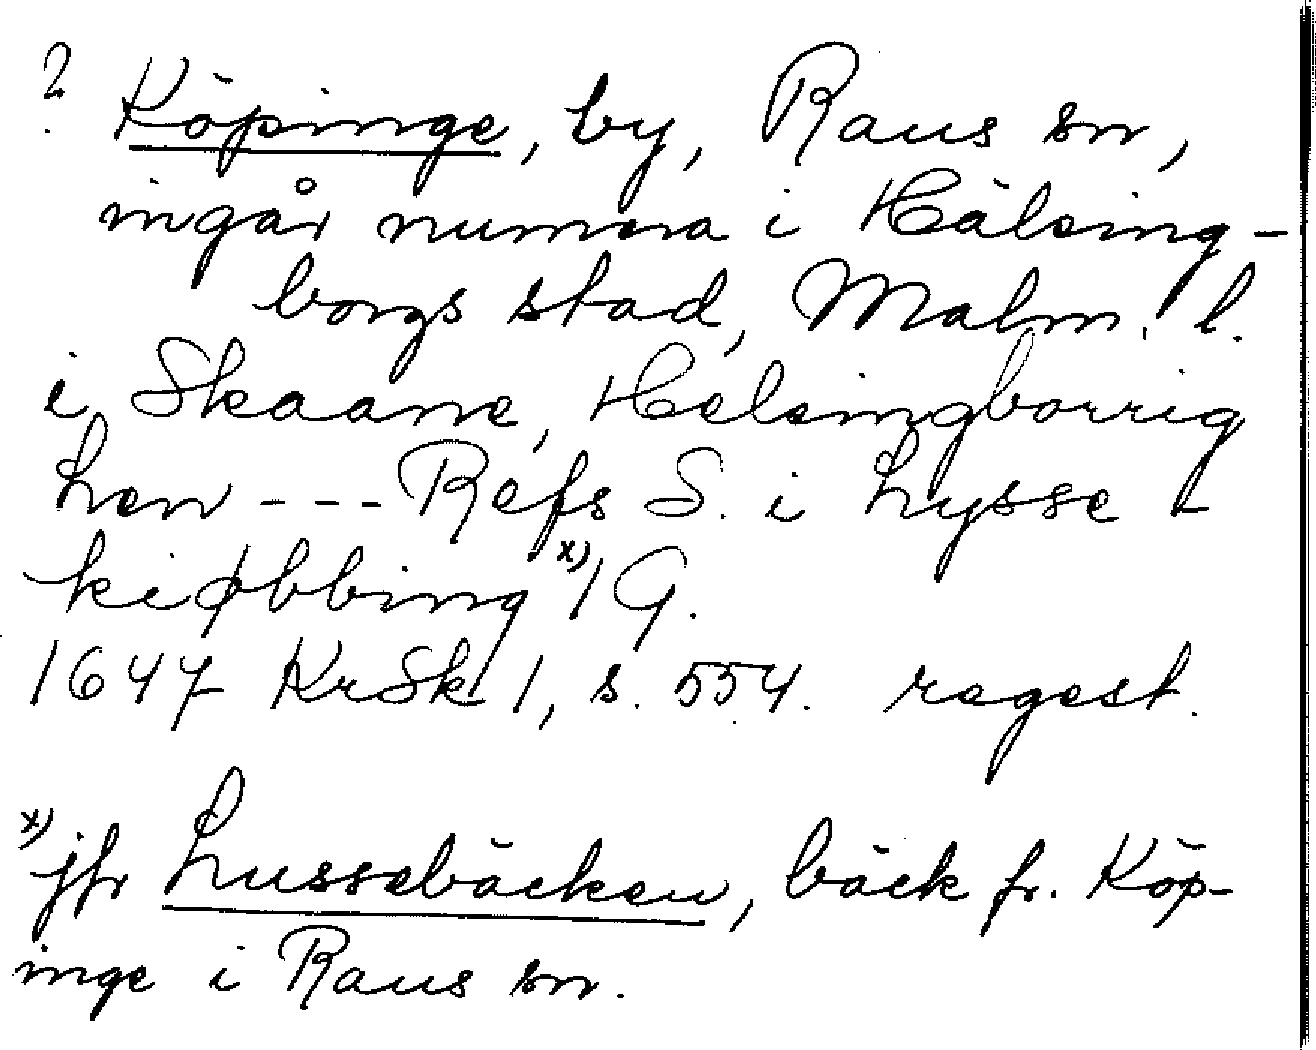 ? Köpinge, by, Raus sn,
ingår numera i Hälsing-
borgs stad, Malm. l.
i Skaane, Helsingborrig
Len --- Refs S. i Lysse-
kiøbbing x) 1 G.
1647 KrSk 1, s. 554. regest.
x) jfr Lussebäcken, bäck fr. Köp-
inge i Raus sn.